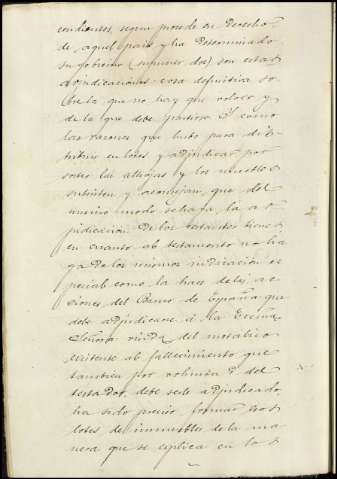 condiciones, segun procede en derecho
de aquel pais y ha determinado
su gobierno
adjudicación cosa definitiva so
bre la que no hay que volver y
de la que debe partirse. Y como
las razones que hubo para dis
tribuir en lotes y adjudicar por
sorteo las alhajas y los muebles
subsisten y aconsejan, que del
mismo modo se haga la ad
judicación de los restantes bienes
en cuanto al testamento no ha
ga de los mismos indicación es
pecial como la hace de las ac
ciones del Banco de España que
debe adjudicarse á la Excma
Señora viuda, del metálico
existente al fallecimiento que
tambien por voluntad del
testador, debe serle adjudicado
ha sido preciso formar tres
lotes de inmuebles de la ma
nera que se esplica en los